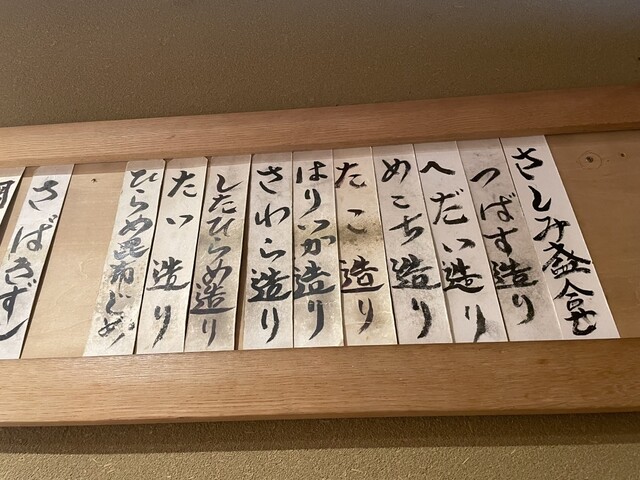 さしみ盛合せ
つばす造り
へだい造り
めこち造り
たこ造り
はりいか造り
さわら造り
したひらめ造り
たい造り
ひらめ昆布じめ
さばきずし